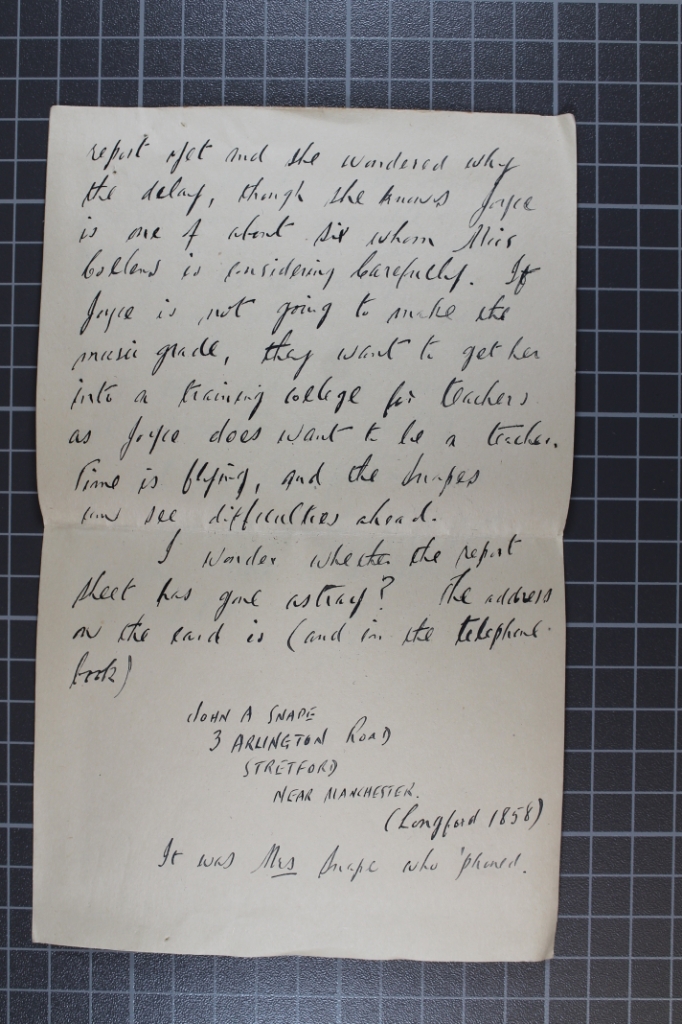 report yet and she wondered why
the delay, though she knows Joyce
is one of about six whom Miss
Collens is considering carefully. If
Joyce is not going to make the
music grade, they want to get her
into a training college for teachers
as Joyce does want to be a teacher.
Time is flying, and the Snapes
can see difficulties ahead.
I wonder whether the report
sheet has gone astray? The address
on the card is (and in the telephone
book)
JOHN A SNAPE
3 ARLINGTON ROAD
STRETFORD
NEAR MANCHESTER.
(Longford 1858)
It was Mrs Snape who 'phoned.